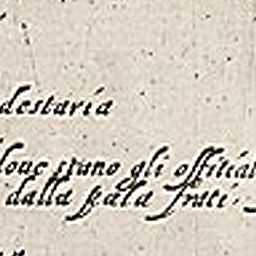 destaria
doue stano gli offitial
dalla sala frati